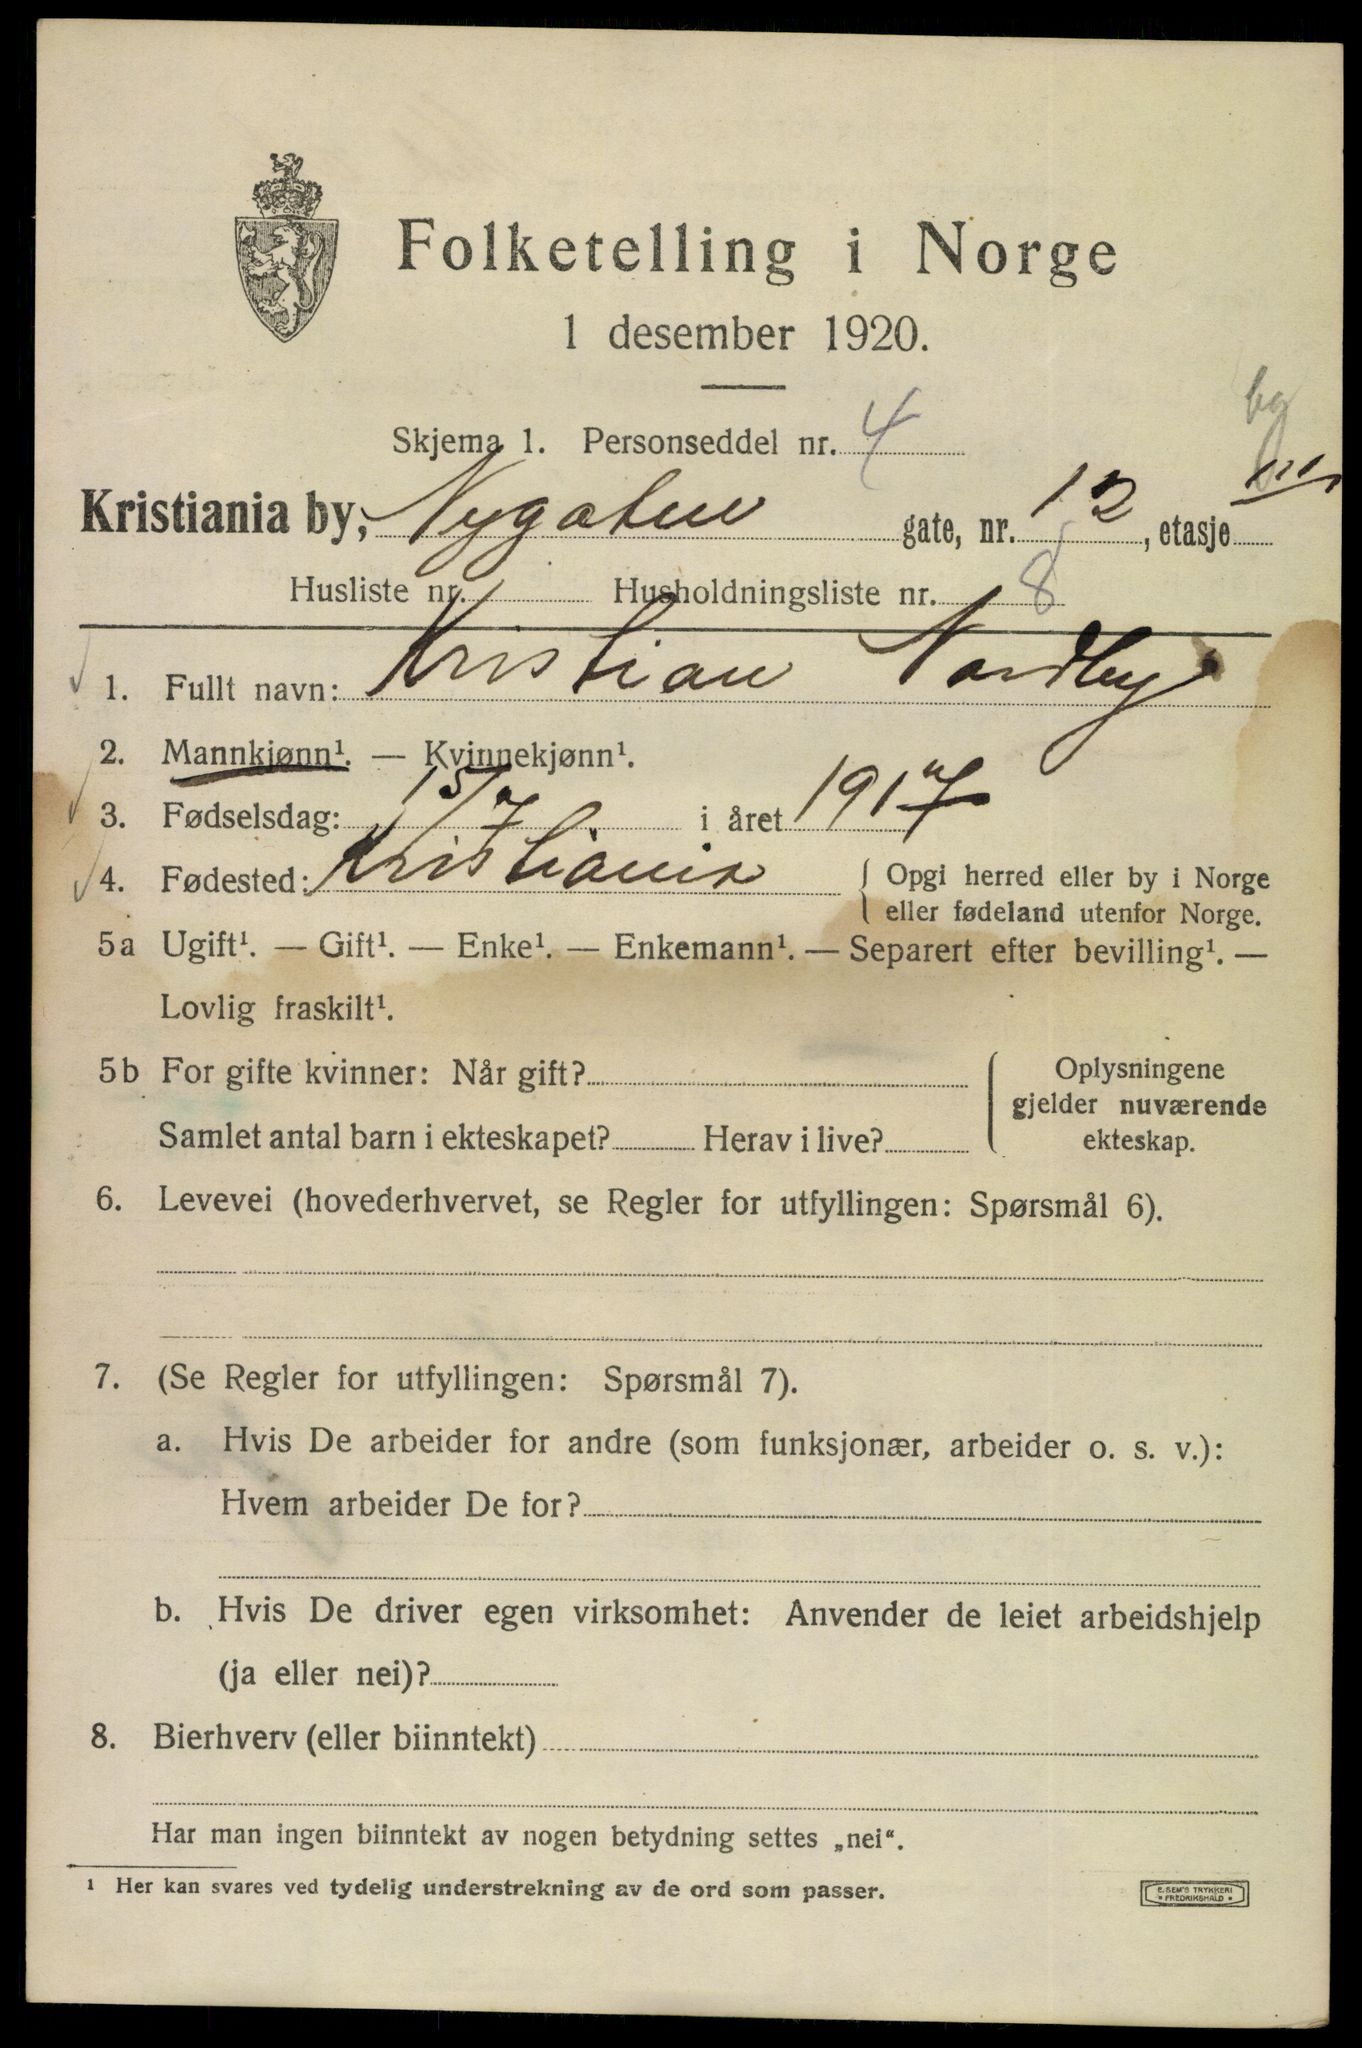 Folketelling i Norge
1 desember 1920.
Skjema 1. Personseddel nr. 4
bg
Kristiania by, Nygaten gate, nr. 12, etasje III
Husliste nr. Husholdningsliste nr. 8
1. Fullt navn: Kristian Nordby
2. Mannkjønn¹. — Kvinnekjønn¹.
3. Fødselsdag: 15/7 i året 1917
4. Fødested: Kristiania
Opgi herred eller by i Norge
eller fødeland utenfor Norge.
5a Ugift¹. — Gift¹. — Enke¹. — Enkemann¹. — Separert efter bevilling¹. —
Lovlig fraskilt¹.
5b For gifte kvinner: Når gift?
Samlet antal barn i ekteskapet? Herav i live?
Oplysningene
gjelder nuværende
ekteskap.
6. Levevei (hovederhvervet, se Regler for utfyllingen: Spørsmål 6).
7. (Se Regler for utfyllingen: Spørsmål 7).
a. Hvis De arbeider for andre (som funksjonær, arbeider o. s. v.):
Hvem arbeider De for?
b. Hvis De driver egen virksomhet: Anvender de leiet arbeidshjelp
(ja eller nei)?
8. Bierhverv (eller biinntekt)
Har man ingen biinntekt av nogen betydning settes „nei“.
¹ Her kan svares ved tydelig understrekning av de ord som passer.
E. SEM'S TRYKKERI
• FREDRIKSHALD •